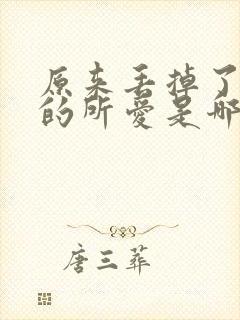 原来丢掉了
的所爱是那
唐三葬